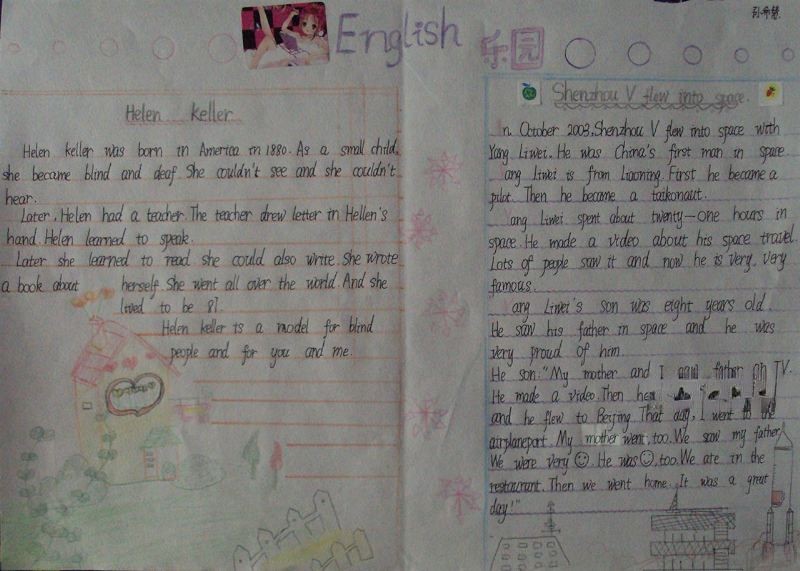 English 乐园
Helen Keller
Helen Keller was born in America in 1880. As a small child,
she became blind and deaf. She couldn't see and she couldn't
hear.
Later, Helen had a teacher. The teacher drew letter in Hellen's
hand. Helen learned to speak.
Later she learned to read she could also write. She wrote
a book about herself. She went all over the world. And she
lived to be 81.
Helen Keller is a model for blind
people and for you and me.
Shenzhou V flew into space.
n October 2003, Shenzhou V flew into space with
Yang Liwei. He was China's first man in space
ang Liwei is from Liaoning. First he became a
pilot. Then he became a taikonaut.
ang Liwei spent about twenty—one hours in
space. He made a video about his space travel.
Lots of people saw it and now he is very, very
famous.
ang Liwei's son was eight years old.
He saw his father in space and he was
very proud of him.
He son: "My mother and I saw father on TV.
He made a video. Then
and he flew to Beijing. That day, I went to the
airplaneport. My mother went, too. We saw my father.
We were very ☺. He was ☺, too. We ate in the
restaurant. Then we went home. It was a great
day!"